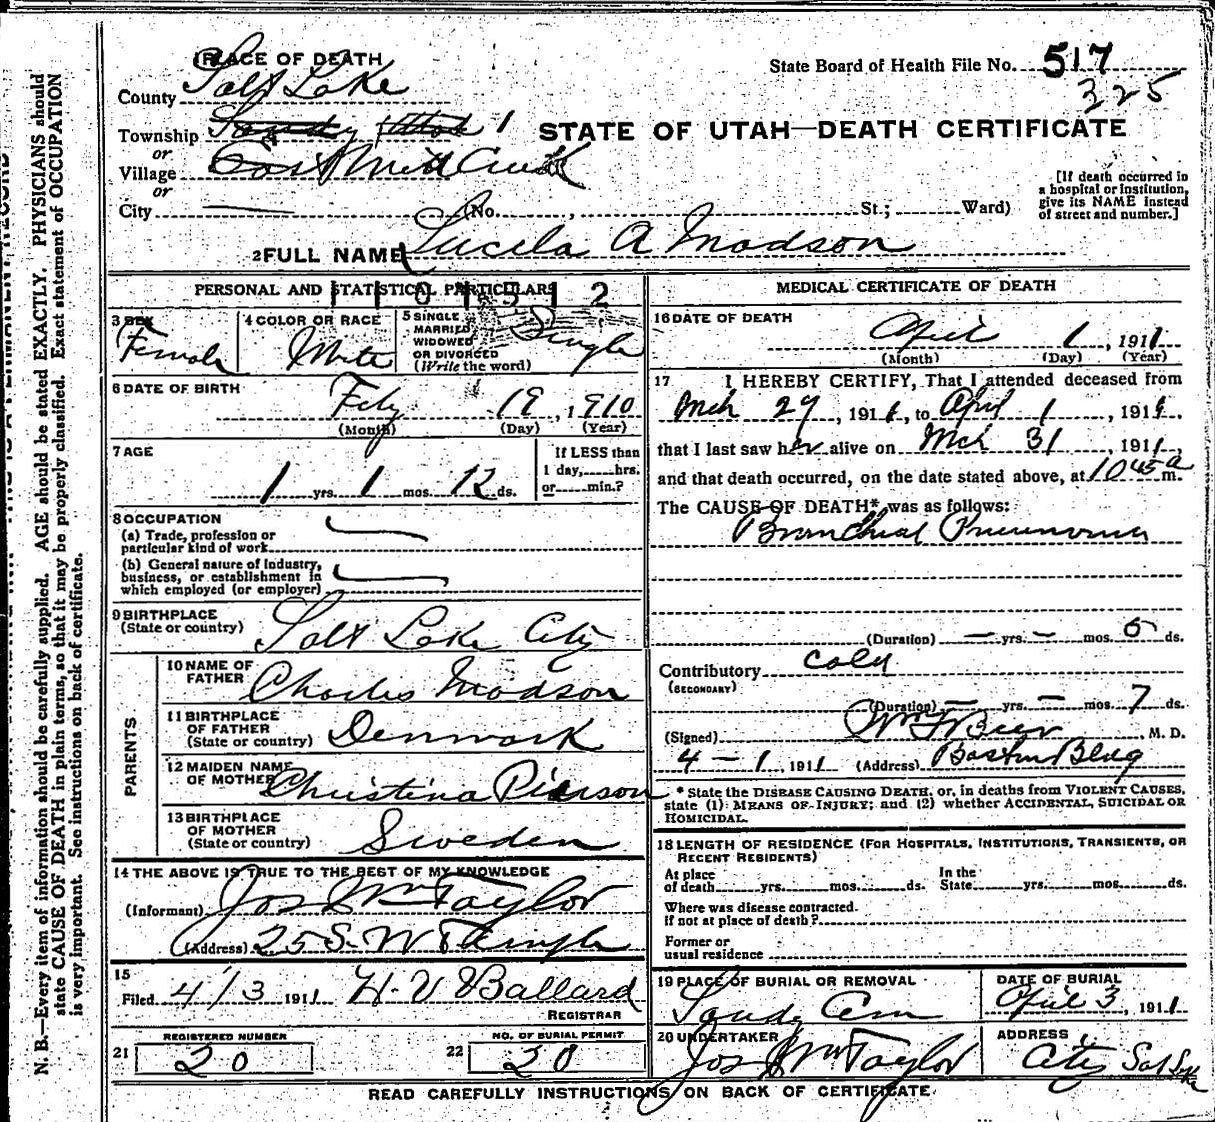 PLACE OF DEATH
State Board of Health File No. 517
325
County Salt Lake
Township Sandy 1
or
STATE OF UTAH—DEATH CERTIFICATE
Village East Mill Creek
or
[If death occurred in
a hospital or institution,
give its NAME instead
of street and number.]
City (No. , St.; Ward)
2 FULL NAME Lucila A Madson
PERSONAL AND STATISTICAL PARTICULARS
110512
3 SEX
Female
4 COLOR OR RACE
White
5 SINGLE
MARRIED
WIDOWED
OR DIVORCED
(Write the word)
Single
6 DATE OF BIRTH
Feby 19, 1910
(Month) (Day) (Year)
7 AGE
1 yrs. 1 mos. 12 ds.
If LESS than
1 day, hrs.
or min.?
8 OCCUPATION
(a) Trade, profession or
particular kind of work
(b) General nature of industry,
business, or establishment in
which employed (or employer)
9 BIRTHPLACE
(State or country)
Salt Lake City
PARENTS
10 NAME OF
FATHER
Charles Madson
11 BIRTHPLACE
OF FATHER
(State or country)
Denmark
12 MAIDEN NAME
OF MOTHER
Christina Pierson
13 BIRTHPLACE
OF MOTHER
(State or country)
Sweden
14 THE ABOVE IS TRUE TO THE BEST OF MY KNOWLEDGE
(Informant) Jos Wm Taylor
(Address) 25 S. W Temple
15
Filed 4/3 1911 H. V Ballard
REGISTRAR
REGISTERED NUMBER
21 20
NO. OF BURIAL PERMIT
22 20
MEDICAL CERTIFICATE OF DEATH
16 DATE OF DEATH
April 1, 1911
(Month) (Day) (Year)
17 I HEREBY CERTIFY, That I attended deceased from
Mch 27, 1911, to April 1, 1911,
that I last saw her alive on Mch 31, 1911
and that death occurred, on the date stated above, at 10 45 a m.
The CAUSE OF DEATH* was as follows:
Bronchial Pneumonia
(Duration) — yrs. — mos. 5 ds.
Contributory cold
(SECONDARY)
(Duration) — yrs. — mos. 7 ds.
(Signed) Wm F Beer, M. D.
4 – 1, 1911 (Address) Boston Bldg
* State the DISEASE CAUSING DEATH, or, in deaths from VIOLENT CAUSES,
state (1) MEANS OF INJURY; and (2) whether ACCIDENTAL, SUICIDAL OR
HOMICIDAL.
18 LENGTH OF RESIDENCE (FOR HOSPITALS, INSTITUTIONS, TRANSIENTS, OR
RECENT RESIDENTS)
At place
of death yrs. mos. ds.
In the
State yrs. mos. ds.
Where was disease contracted.
if not at place of death?
Former or
usual residence
19 PLACE OF BURIAL OR REMOVAL
Sandy Cem
DATE OF BURIAL
April 3, 1911
20 UNDERTAKER
Jos Wm Taylor
ADDRESS
City Salt Lake
READ CAREFULLY INSTRUCTIONS ON BACK OF CERTIFICATE.
N. B.—Every item of information should be carefully supplied. AGE should be stated EXACTLY. PHYSICIANS should
state CAUSE OF DEATH in plain terms, so that it may be properly classified. Exact statement of OCCUPATION
is very important. See instructions on back of certificate.